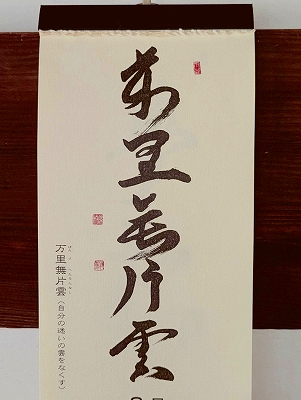 萬里無片雲
万里無片雲(自分の迷いの雲をなくす)